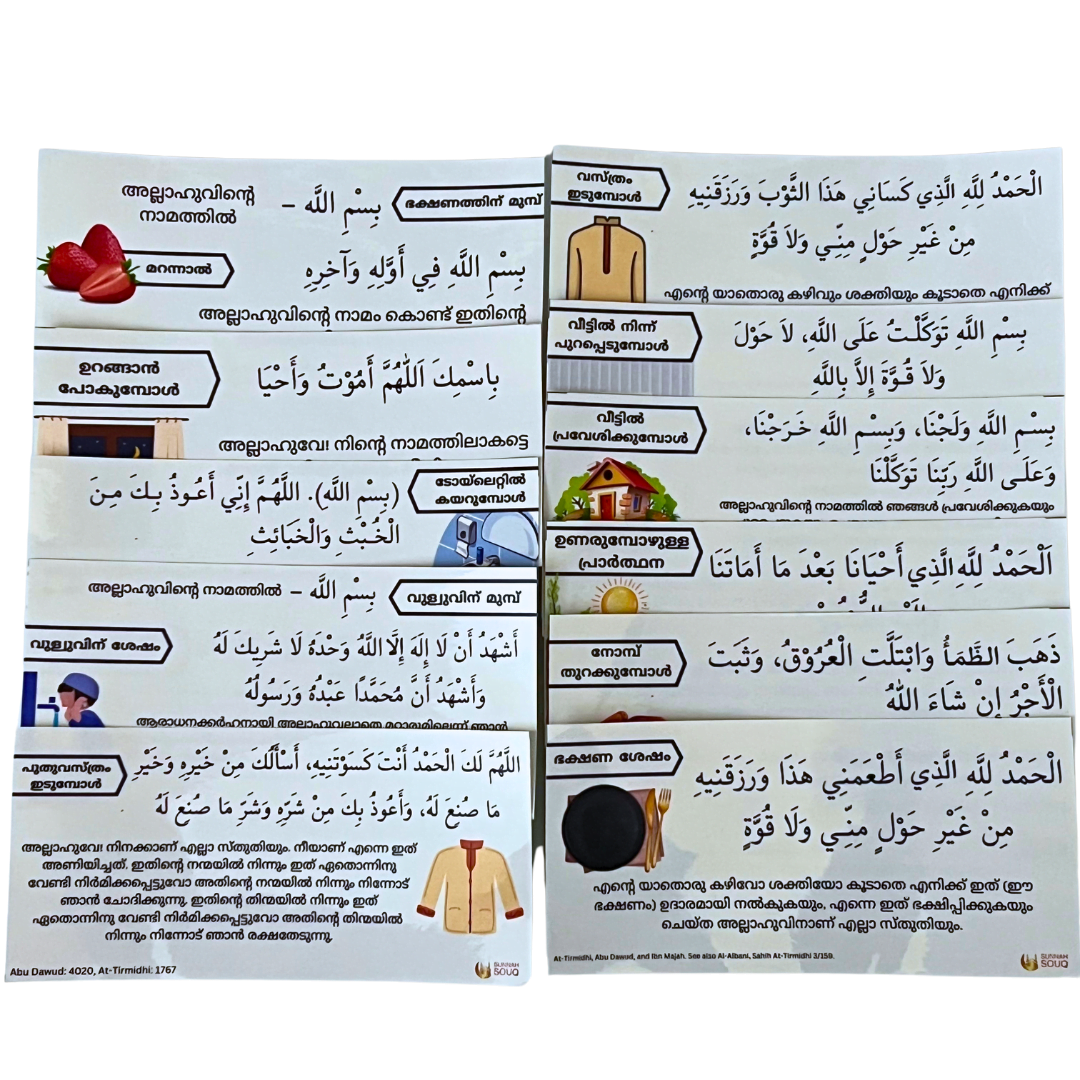 അല്ലാഹുവിന്റെ നാമത്തിൽ
بِسْمِ اللَّه –
ഭക്ഷണത്തിന് മുമ്പ്
മറന്നാൽ
بِسْمِ اللَّهِ فِي أَوَّلِهِ وَآخِرِهِ
അല്ലാഹുവിന്റെ നാമം കൊണ്ട് ഇതിന്റെ
ഉറങ്ങാൻ
പോകുമ്പോൾ
بِاسْمِكَ اَللَّهُمَّ أَمُوْتُ وَأَحْيَا
അല്ലാഹുവേ! നിന്റെ നാമത്തിലാകട്ടെ
ടോയ്ലെറ്റിൽ
കയറുമ്പോൾ
(بِسْمِ اللَّهِ). اللَّهُمَّ إِنِّي أَعُوذُ بِكَ مِنَ
الْخُبْثِ وَالْخَبَائِثِ
അല്ലാഹുവിന്റെ നാമത്തിൽ – بِسْمِ اللَّه
വുളുവിന് മുമ്പ്
വുളുവിന് ശേഷം
أَشْهَدُ أَنْ لَا إِلَهَ إِلَّا اللَّهُ وَحْدَهُ لَا شَرِيكَ لَهُ
وَأَشْهَدُ أَنَّ مُحَمَّدًا عَبْدُهُ وَرَسُولُهُ
ആരാധനക്കർഹനായി അല്ലാഹുവല്ലാതെ മറ്റാരുമില്ലെന്ന് ഞാൻ
പുതുവസ്ത്രം
ഇടുമ്പോൾ
اللَّهُمَّ لَكَ الْحَمْدُ أَنْتَ كَسَوْتَنِيهِ، أَسْأَلُكَ مِنْ خَيْرِهِ وَخَيْرِ
مَا صُنِعَ لَهُ، وَأَعُوذُ بِكَ مِنْ شَرِّهِ وَشَرِّ مَا صُنِعَ لَهُ
അല്ലാഹുവേ! നിനക്കാണ് എല്ലാ സ്തുതിയും. നീയാണ് എന്നെ ഇത്
അണിയിച്ചത്. ഇതിന്റെ നന്മയിൽ നിന്നും ഇത് ഏതൊന്നിനു
വേണ്ടി നിർമിക്കപ്പെട്ടുവോ അതിന്റെ നന്മയിൽ നിന്നും നിന്നോട്
ഞാൻ ചോദിക്കുന്നു. ഇതിന്റെ തിന്മയിൽ നിന്നും ഇത്
ഏതൊന്നിനു വേണ്ടി നിർമിക്കപ്പെട്ടുവോ അതിന്റെ തിന്മയിൽ
നിന്നും നിന്നോട് ഞാൻ രക്ഷതേടുന്നു.
Abu Dawud: 4020, At-Tirmidhi: 1767
SUNNAH
SOUQ
വസ്ത്രം
ഇടുമ്പോൾ
الْحَمْدُ لِلَّهِ الَّذِي كَسَانِي هَذَا الثَّوْبَ وَرَزَقَنِيهِ
مِنْ غَيْرِ حَوْلٍ مِنِّي وَلاَ قُوَّةٍ
എന്റെ യാതൊരു കഴിവും ശക്തിയും കൂടാതെ എനിക്ക്
വീട്ടിൽ നിന്ന്
പുറപ്പെടുമ്പോൾ
بِسْمِ اللَّهِ تَوَكَّلْتُ عَلَى اللَّهِ، لاَ حَوْلَ
وَلاَ قُوَّةَ إِلاَّ بِاللَّهِ
വീട്ടിൽ
പ്രവേശിക്കുമ്പോൾ
بِسْمِ اللَّهِ وَلَجْنَا، وَبِسْمِ اللَّهِ خَرَجْنَا،
وَعَلَى اللَّهِ رَبِّنَا تَوَكَّلْنَا
അല്ലാഹുവിന്റെ നാമത്തിൽ ഞങ്ങൾ പ്രവേശിക്കുകയും
ഉണരുമ്പോഴുള്ള
പ്രാർത്ഥന
اَلْحَمْدُ لِلَّهِ الَّذِي أَحْيَانَا بَعْدَ مَا أَمَاتَنَا
നോമ്പ്
തുറക്കുമ്പോൾ
ذَهَبَ الظَّمَأُ وَابْتَلَّتِ الْعُرُوْقُ، وَثَبَتَ
الْأَجْرُ إِنْ شَاءَ اللهُ
ഭക്ഷണ ശേഷം
الْحَمْدُ لِلَّهِ الَّذِي أَطْعَمَنِي هَذَا وَرَزَقَنِيهِ
مِنْ غَيْرِ حَوْلٍ مِنِّي وَلَا قُوَّةٍ
എന്റെ യാതൊരു കഴിവോ ശക്തിയോ കൂടാതെ എനിക്ക് ഇത് (ഈ
ഭക്ഷണം) ഉദാരമായി നൽകുകയും, എന്നെ ഇത് ഭക്ഷിപ്പിക്കുകയും
ചെയ്ത അല്ലാഹുവിനാണ് എല്ലാ സ്തുതിയും.
At-Tirmidhi, Abu Dawud, and Ibn Majah. See also Al-Albani, Sahih At-Tirmidhi 3/159.
SUNNAH
SOUQ